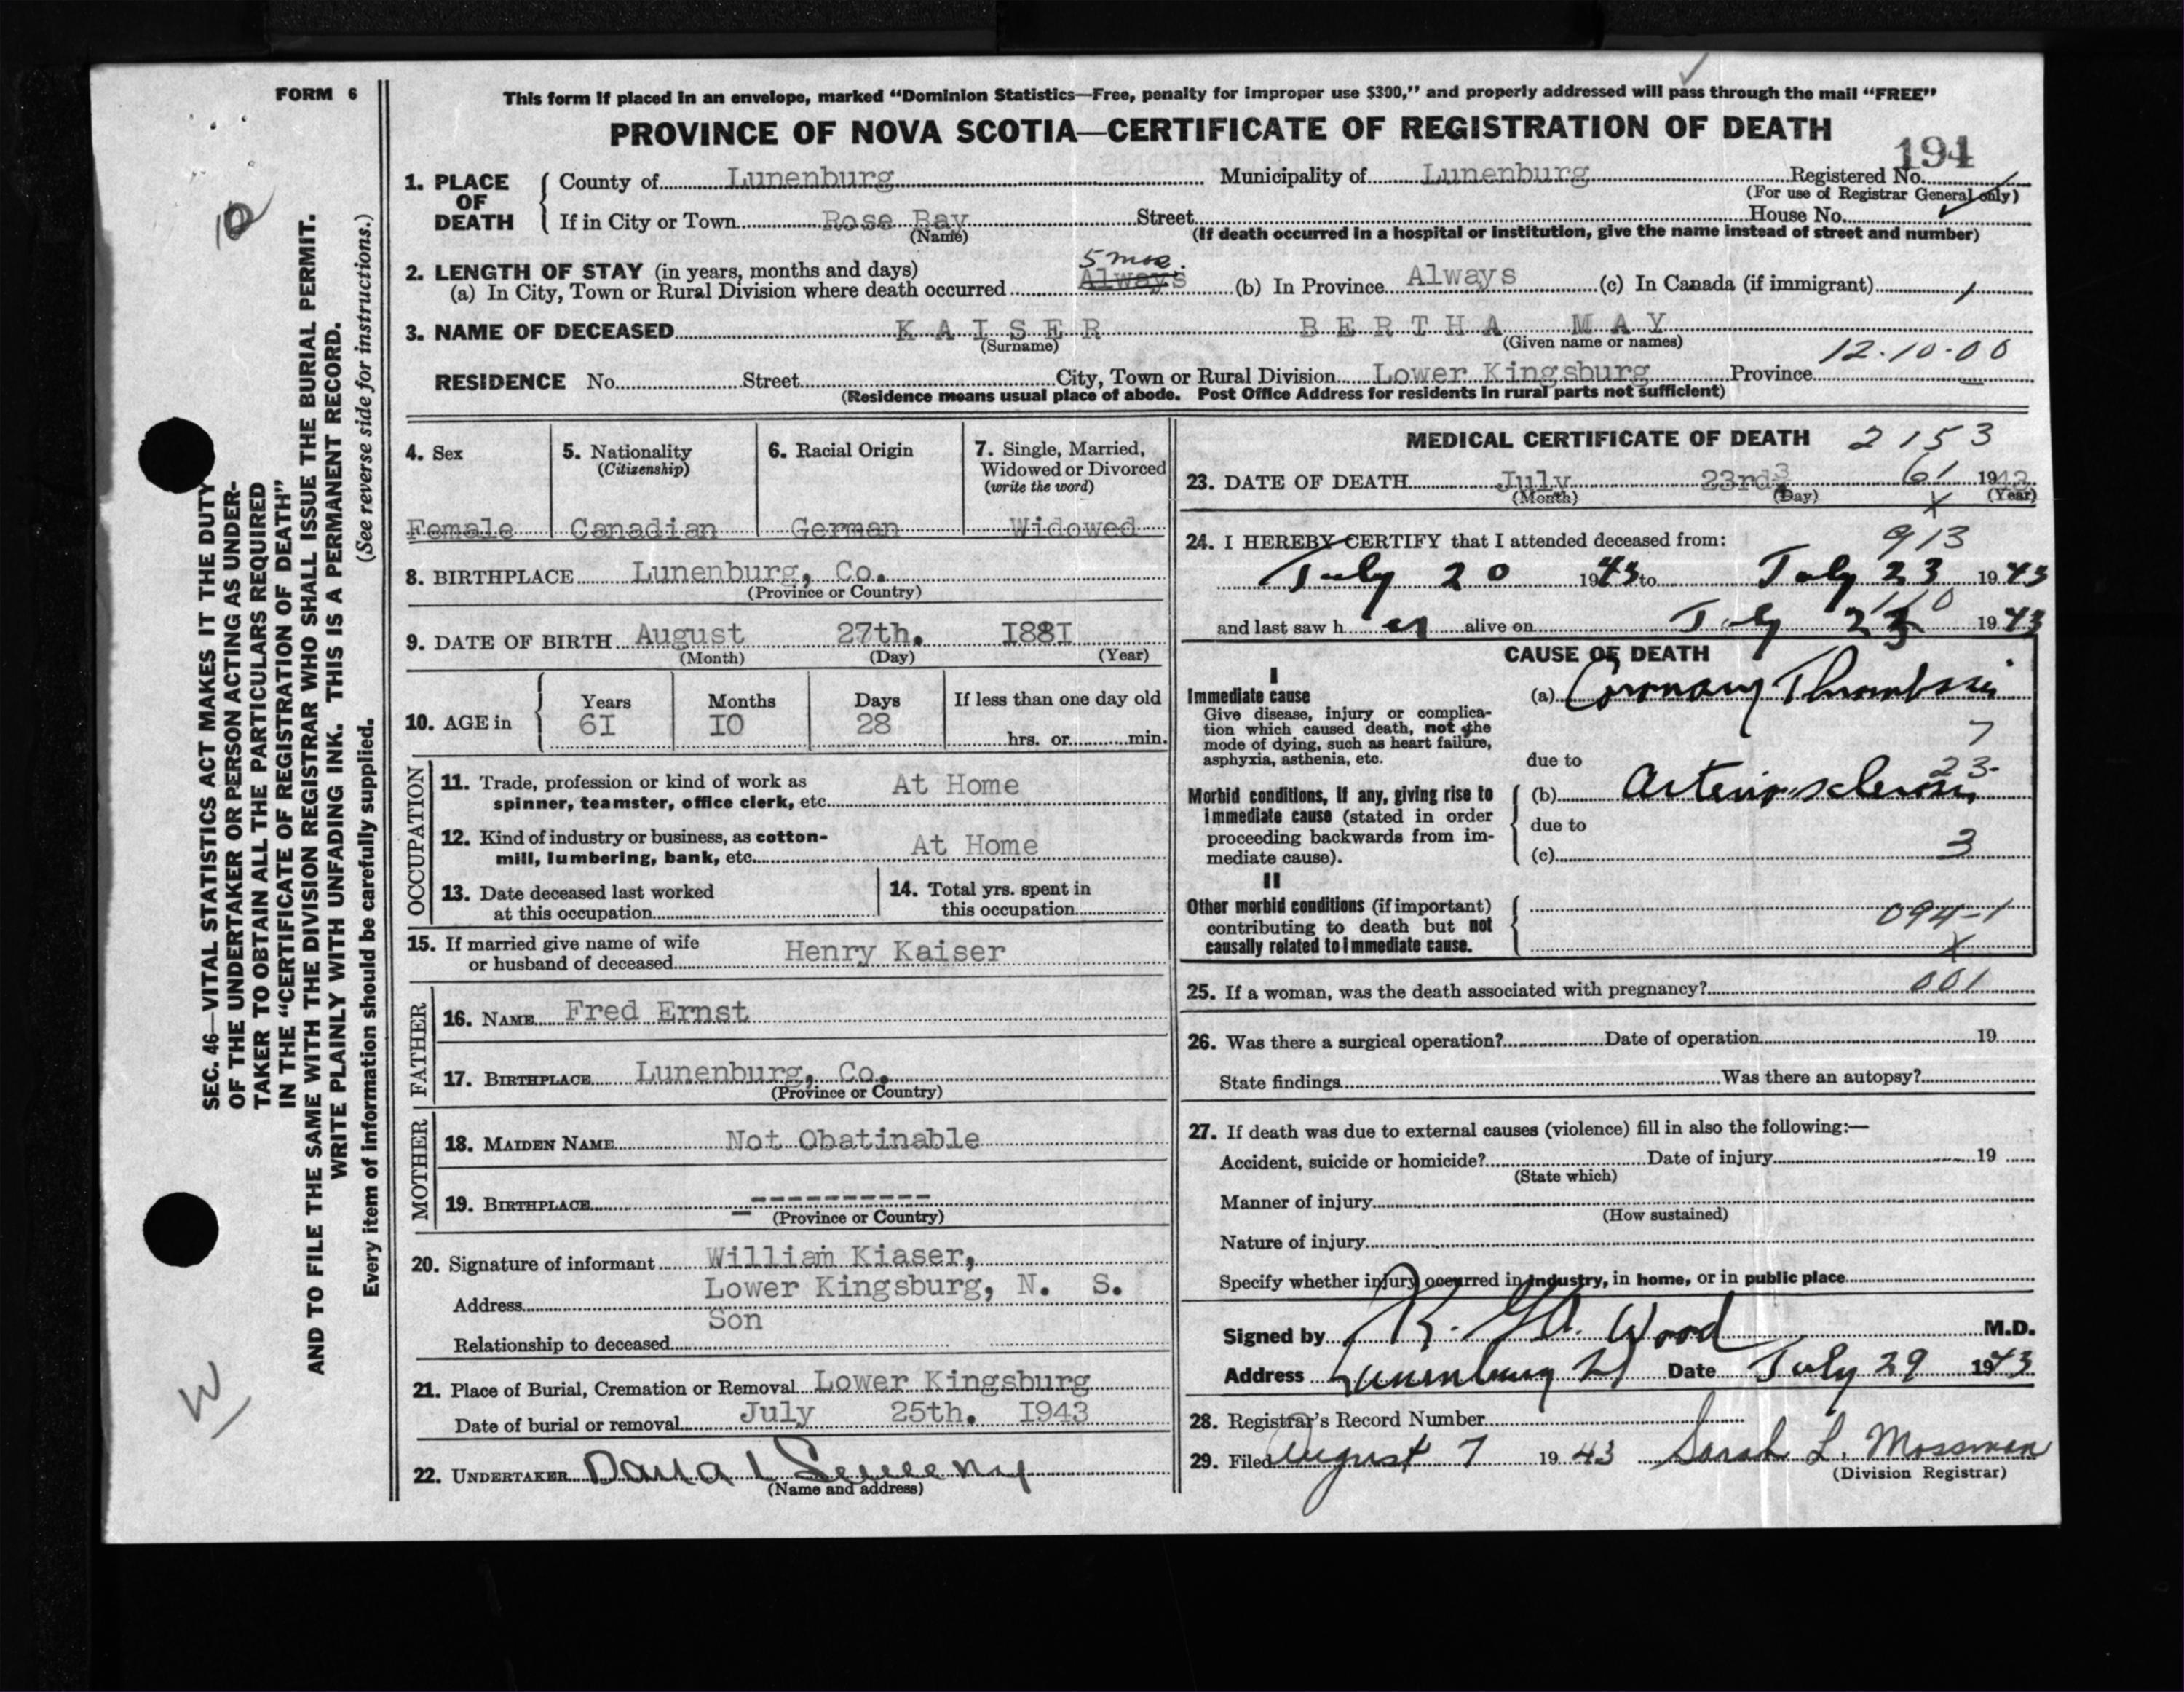 FORM 6
This form if placed in an envelope, marked "Dominion Statistics—Free, penalty for improper use $300," and properly addressed will pass through the mail "FREE"
PROVINCE OF NOVA SCOTIA—CERTIFICATE OF REGISTRATION OF DEATH
194
1. PLACE OF DEATH
County of Lunenburg Municipality of Lunenburg Registered No.
(For use of Registrar General only)
If in City or Town Rose Bay Street House No.
(Name) (If death occurred in a hospital or institution, give the name instead of street and number)
2. LENGTH OF STAY (in years, months and days) 5 mos.
(a) In City, Town or Rural Division where death occurred Always (b) In Province Always (c) In Canada (if immigrant)
3. NAME OF DECEASED KAISER BERTHA MAY
(Surname) (Given name or names)
12-10-00
RESIDENCE No. Street City, Town or Rural Division Lower Kingsburg Province
(Residence means usual place of abode. Post Office Address for residents in rural parts not sufficient)
4. Sex 5. Nationality (Citizenship) 6. Racial Origin 7. Single, Married, Widowed or Divorced (write the word)
Female Canadian German Widowed
8. BIRTHPLACE Lunenburg, Co.
(Province or Country)
9. DATE OF BIRTH August 27th. I88I
(Month) (Day) (Year)
10. AGE in Years Months Days If less than one day old
6I IO 28 hrs. or min.
OCCUPATION
11. Trade, profession or kind of work as At Home
spinner, teamster, office clerk, etc.
12. Kind of industry or business, as cotton- At Home
mill, lumbering, bank, etc.
13. Date deceased last worked at this occupation
14. Total yrs. spent in this occupation
15. If married give name of wife Henry Kaiser
or husband of deceased
FATHER
16. NAME Fred Ernst
17. BIRTHPLACE Lunenburg, Co.
(Province or Country)
MOTHER
18. MAIDEN NAME Not Obatinable
19. BIRTHPLACE ----------
(Province or Country)
20. Signature of informant William Kiaser,
Address Lower Kingsburg, N. S.
Relationship to deceased Son
21. Place of Burial, Cremation or Removal Lower Kingsburg
Date of burial or removal July 25th. I943
22. UNDERTAKER
(Name and address)
MEDICAL CERTIFICATE OF DEATH 2153
23. DATE OF DEATH July 23rd 61 1943
(Month) (Day) (Year)
24. I HEREBY CERTIFY that I attended deceased from: 913
July 20 1943 to July 23 1943
110
and last saw her alive on July 23 1943
CAUSE OF DEATH
I
Immediate cause (a) Coronary Thrombosis
Give disease, injury or complica-
tion which caused death, not the
mode of dying, such as heart failure,
asphyxia, asthenia, etc. due to
7
23-
Morbid conditions, if any, giving rise to (b) Arteriosclerosis
immediate cause (stated in order due to
proceeding backwards from im-
mediate cause). (c) 3
II
Other morbid conditions (if important)
contributing to death but not 094-1
causally related to immediate cause. X
25. If a woman, was the death associated with pregnancy? 001
26. Was there a surgical operation? Date of operation 19
State findings Was there an autopsy?
27. If death was due to external causes (violence) fill in also the following:—
Accident, suicide or homicide? Date of injury 19
(State which)
Manner of injury
(How sustained)
Nature of injury
Specify whether injury occurred in industry, in home, or in public place
Signed by Wood M.D.
Address Lunenburg Date July 29 1943
28. Registrar's Record Number
29. Filed August 7 1943 Sarah L. Mossman
(Division Registrar)
SEC. 46—VITAL STATISTICS ACT MAKES IT THE DUTY
OF THE UNDERTAKER OR PERSON ACTING AS UNDER-
TAKER TO OBTAIN ALL THE PARTICULARS REQUIRED
IN THE "CERTIFICATE OF REGISTRATION OF DEATH"
AND TO FILE THE SAME WITH THE DIVISION REGISTRAR WHO SHALL ISSUE THE BURIAL PERMIT.
WRITE PLAINLY WITH UNFADING INK. THIS IS A PERMANENT RECORD.
Every item of information should be carefully supplied. (See reverse side for instructions.)
W